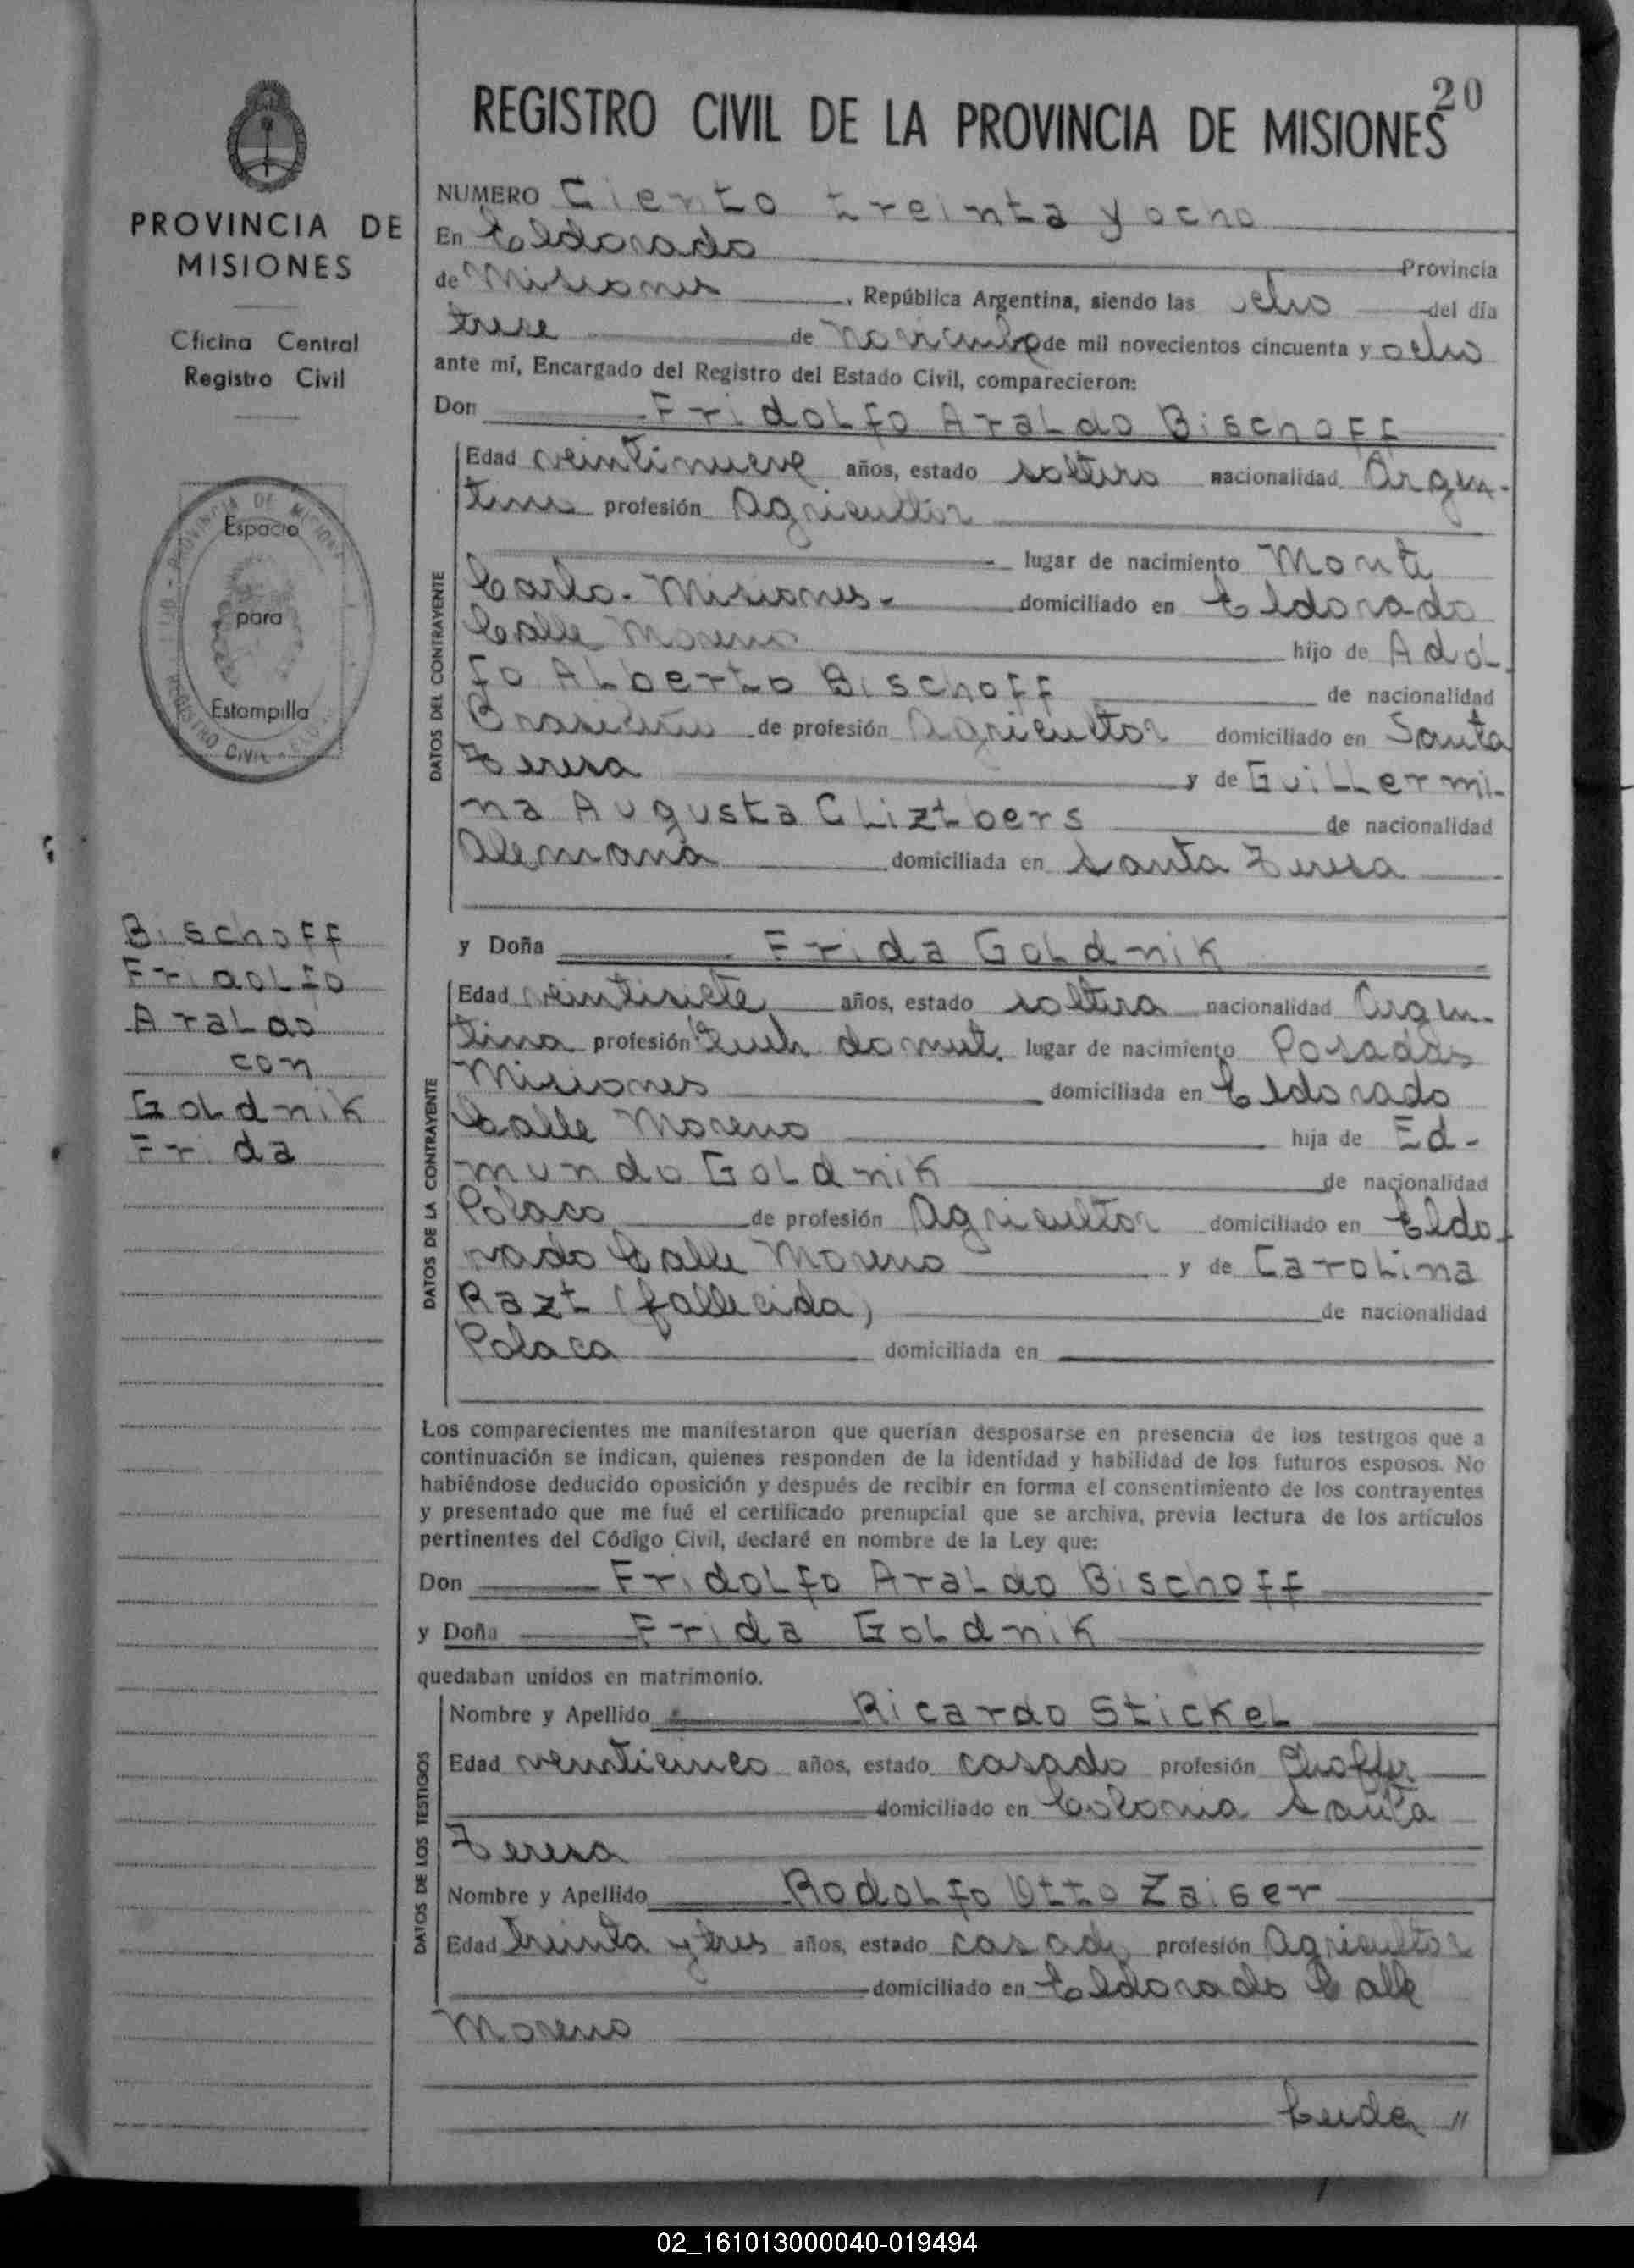 20
REGISTRO CIVIL DE LA PROVINCIA DE MISIONES
PROVINCIA DE
MISIONES
Oficina Central
Registro Civil
Espacio
para
Estampilla
Bischoff
Fridolfo
Araldo
con
Goldnik
Frida
NUMERO Ciento treinta y ocho
En Eldorado Provincia
de Misiones, República Argentina, siendo las ocho del día
trece de noviembre de mil novecientos cincuenta y ocho
ante mí, Encargado del Registro del Estado Civil, comparecieron:
Don Fridolfo Araldo Bischoff
DATOS DEL CONTRAYENTE
Edad veintinueve años, estado soltero nacionalidad Argen-
tino profesión Agricultor
lugar de nacimiento Monte
Carlo. Misiones.- domiciliado en Eldorado
Calle Moreno hijo de Adol-
fo Alberto Bischoff de nacionalidad
Brasileño de profesión Agricultor domiciliado en Santa
Teresa y de Guillermi-
na Augusta Cliztbers de nacionalidad
Alemana domiciliada en Santa Teresa
y Doña Frida Goldnik
DATOS DE LA CONTRAYENTE
Edad veintisiete años, estado soltera nacionalidad Argen-
tina profesión domest. lugar de nacimiento Posadas
Misiones domiciliada en Eldorado
Calle Moreno hija de Ed-
mundo Goldnik de nacionalidad
Polaco de profesión Agricultor domiciliado en Eldo-
rado Calle Moreno y de Carolina
Razt (fallecida) de nacionalidad
Polaca domiciliada en
Los comparecientes me manifestaron que querían desposarse en presencia de los testigos que a
continuación se indican, quienes responden de la identidad y habilidad de los futuros esposos. No
habiéndose deducido oposición y después de recibir en forma el consentimiento de los contrayentes
y presentado que me fué el certificado prenupcial que se archiva, previa lectura de los artículos
pertinentes del Código Civil, declaré en nombre de la Ley que:
Don Fridolfo Araldo Bischoff
y Doña Frida Goldnik
quedaban unidos en matrimonio.
DATOS DE LOS TESTIGOS
Nombre y Apellido Ricardo Stickel
Edad veinticinco años, estado casado profesión Choffer
domiciliado en Colonia Santa
Teresa
Nombre y Apellido Rodolfo Otto Zaiser
Edad treinta y tres años, estado casado profesión Agricultor
domiciliado en Eldorado Calle
Moreno
02_161013000040-019494